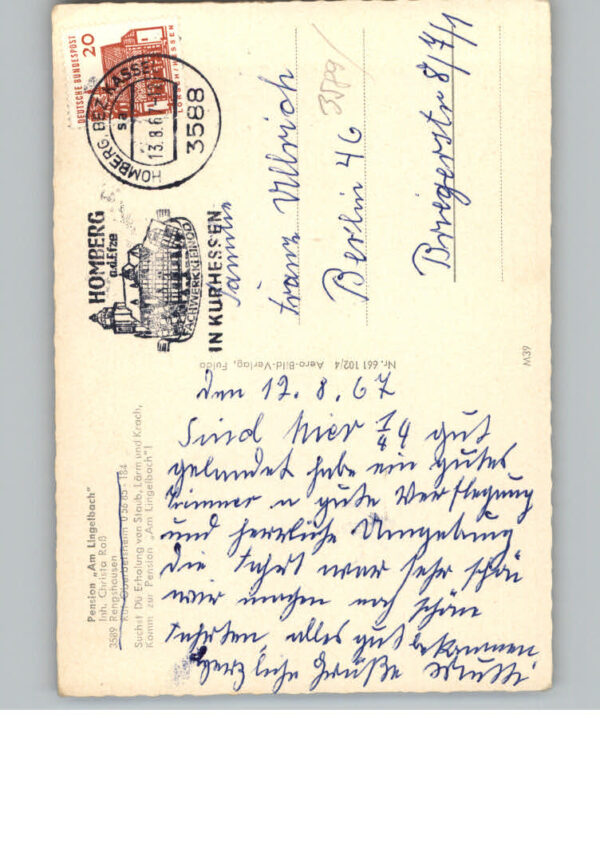 DEUTSCHE BUNDESPOST
20
LORSCH/HESSEN
HOMBERG, BEZ. KASSEL
sa
13.8.67
3588
HOMBERG
a.d.Efze
FACHWERK
IN KURHESSEN
Familie
Franz Ullrich
3589
Berlin 46
Briegerstr 8/7/1
Nr. 661 102/4 Aero-Bild-Verlag, Fulda
M39
Pension „Am Lingelbach"
Inh. Christa Roß
3589 Rengshausen
Ruf: Oberbeisheim 0 56 85 - 184
Suchst Du Erholung von Staub, Lärm und Krach,
Komm zur Pension „Am Lingelbach"!
Den 12. 8. 67
Sind hier gut
gelandet habe ein gutes
Zimmer u gute Verflegung
und herrliche Umgebung
die Fahrt war sehr schön
wir machen noch schöne
Fahrten, alles gut bekommen
Herzliche Grüße Mutti